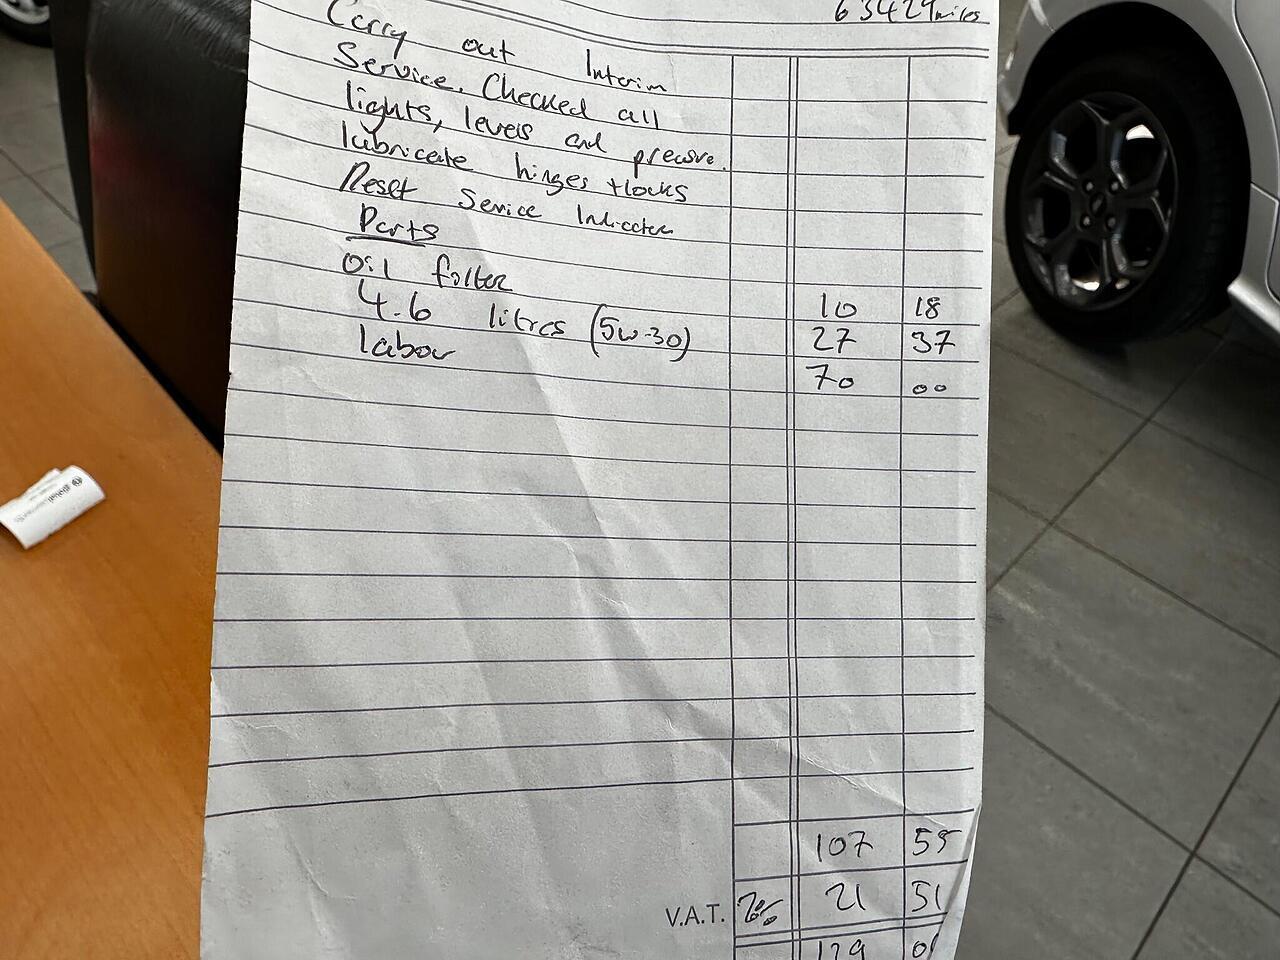 63429 miles
Carry out Interim
Service. Checked all
lights, levels and presure.
lubricate hinges + locks
Reset Service Indicator
Parts
Oil filter 10 18
4.6 litres (5w-30) 27 37
labour 70 00
107 55
V.A.T. 20% 21 51
129 06